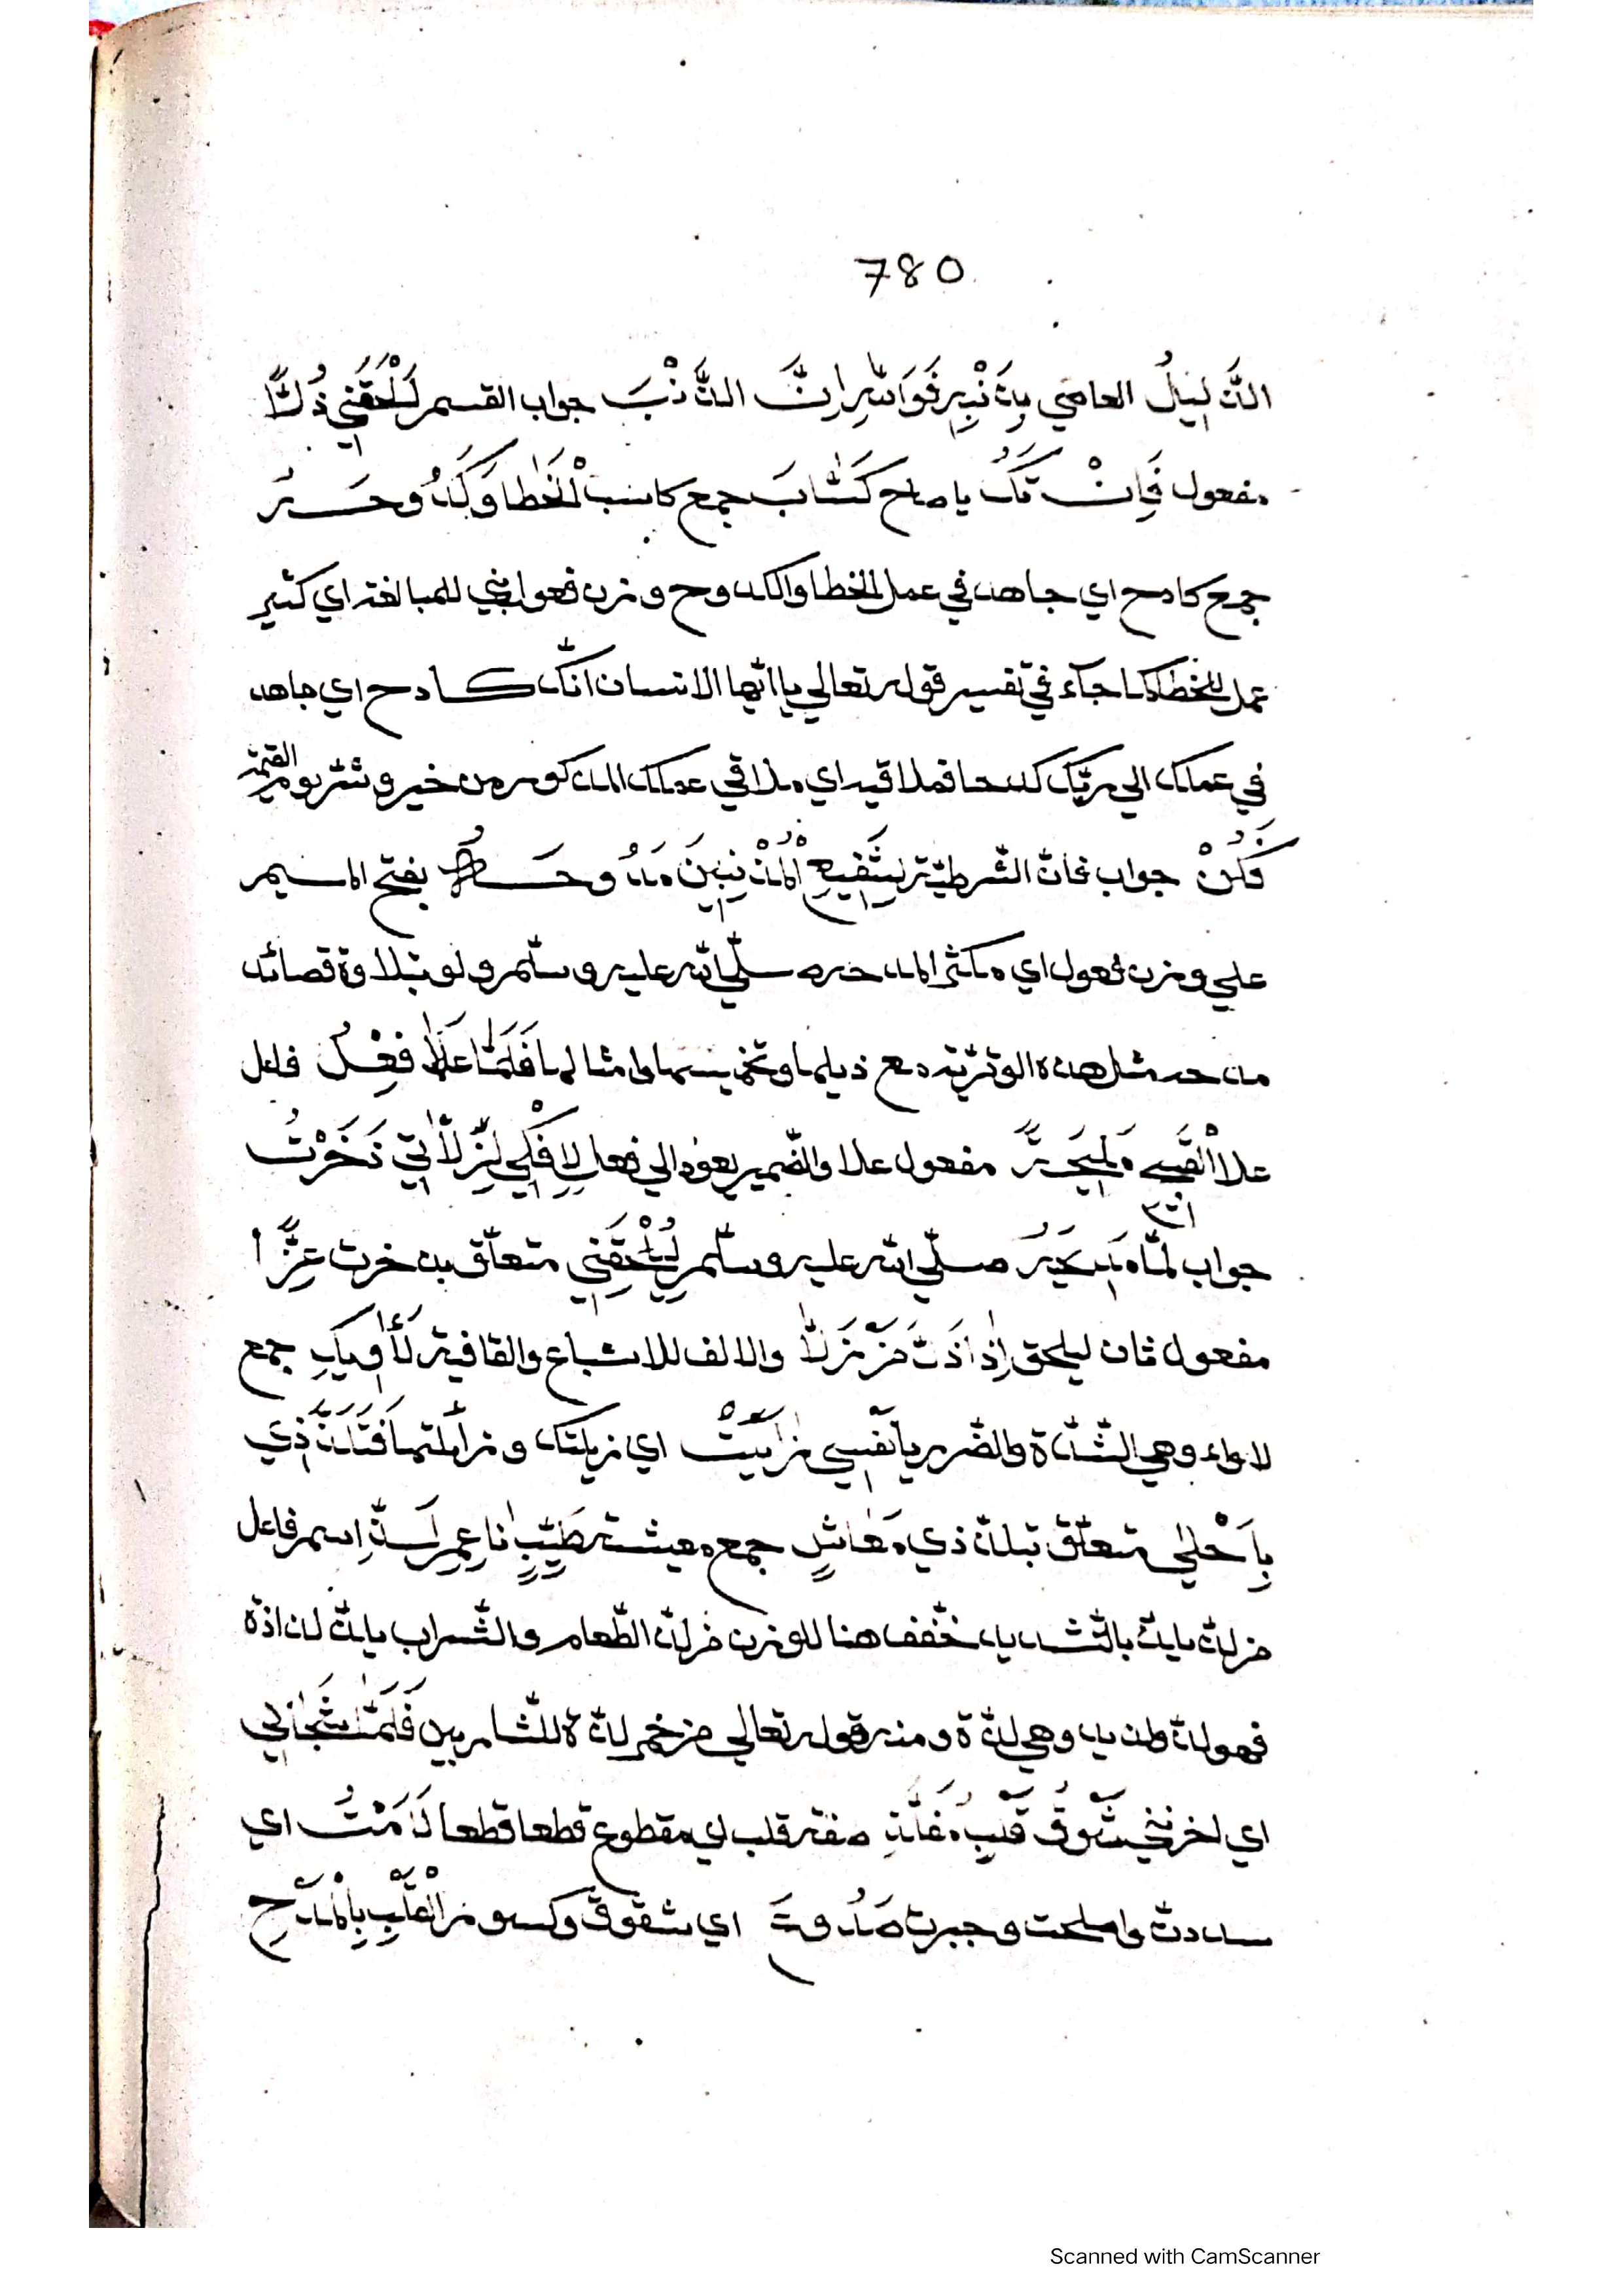 780
الذَّلِيلُ العاصي بِذَنْبِهِ فَوَاللهِ إِنَّ الذَّنْبَ جواب القسم لَيُلْحِقُنِي ذُلًّا
مفعول فَإِنْ تَكُ يا صاح كَسَّابَ جمع كاسب الْخَطا وَكَدُوحَهُ
جمع كادح اي جاهد في عمل الخطا والكدوح وزن فعول بني للمبالغة اي كثير
عمل الخطا كما جآء في تفسير قوله تعالي يا ايّها الانسان انّك كادح اي جاهد
في عملك الي ربّك كدحا فملاقيه اي ملاقي عملك المذكور من خير وشرّ يوم القيمة
فَكُنْ جواب فان الشّرطيّة لِشَفِيعِ الْمُذْنِبِينَ مَدُوحَهُ بفتح الميم
علي وزن فعول اي مكثر المدح له صلّي الله عليه وسلّم ولو بتلاوة قصائد
مدحه مثل هذه الوتريّة مع ذيلها وتخميسها وامثالها فَلَمَّا عَلَا فِعْلُ فاعل
علا الْقَبِيحِ مَلِيحَهُ مفعول علا والضّمير يعود الي فعل لِافْكِي لِزَلَّاتِي ذَخَرْتُ
جواب لمّا مَدِيحَهُ صلّي الله عليه وسلّم لِيُلْحِقَنِي متعلّق بذخرت عِزًّا
مفعول ثان ليلحق إِذا ذَتَّ مَنْ زَلَّا والالف للاشباع والقافية لَأْوِيكِ جمع
لاواء وهي الشّدّة والضّرر يا نَفْسِي زايَيْتْ اي زيلتك وزايلتها فَتَلَذَّذِي
بِأَحْلٰي متعلّق تبلذّذي مَعَاشٍ جمع معيشة طَيِّبٍ ناعِمٍ لَذِّ اسم فاعل
من لذّ يلذّ بالتّشديد خفّف هنا للوزن من لذّ الطّعام والشّراب يلذّ لذاذة
فهو لذّ ولذيذ وهي لذّة ومنه قوله تعالي من خمر لذّة للشّاربين فَلَمَّا شَجَانِي
اي احزنني شَوْقُ قَلْبٍ مُفَلَّذِ صفة قلب اي مقطوع قطعا قطعا لَأَمْتُ اي
سددت واصلحت وجبرت صُدُوعَ اي شقوق وكسور الْقَلْبِ بِالْمَدْحِ
Scanned with CamScanner